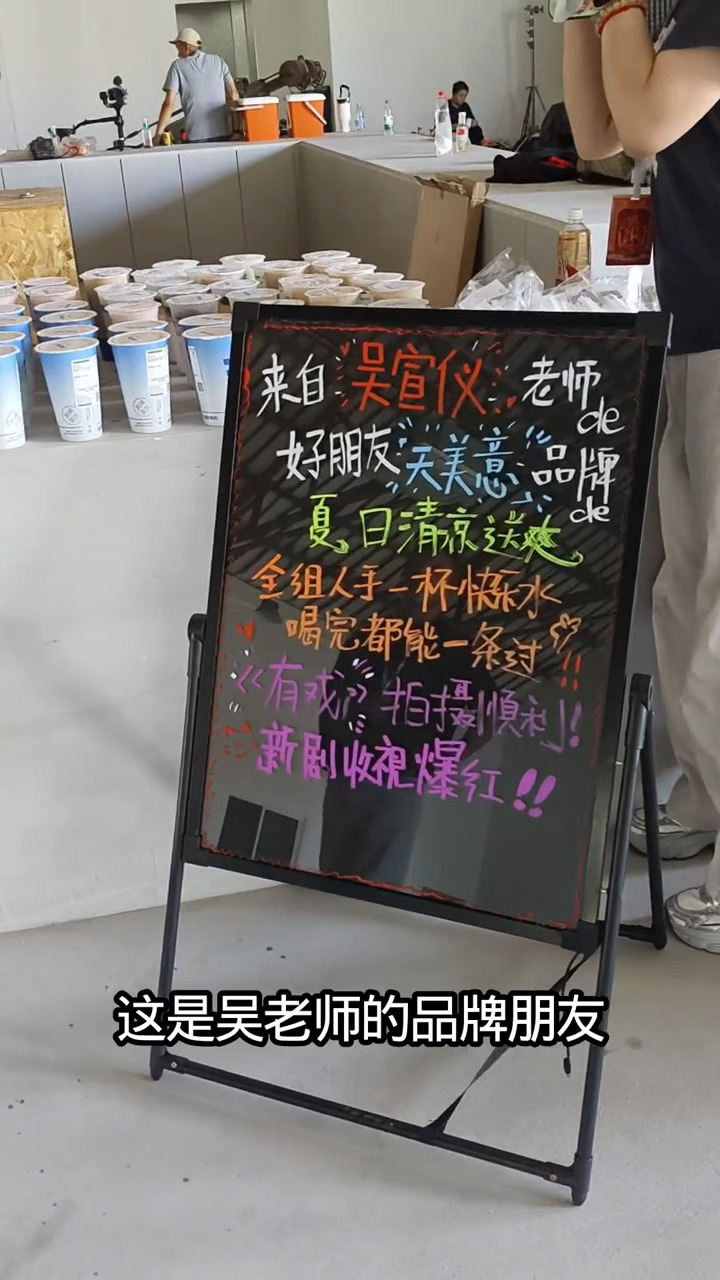 来自吴宣仪老师de
好朋友天美意品牌de
夏日清凉送爽
全组人手一杯快乐水
喝完都能一条过!!
《有戏》拍摄順利!
新剧收視爆红!!
这是吴老师的品牌朋友